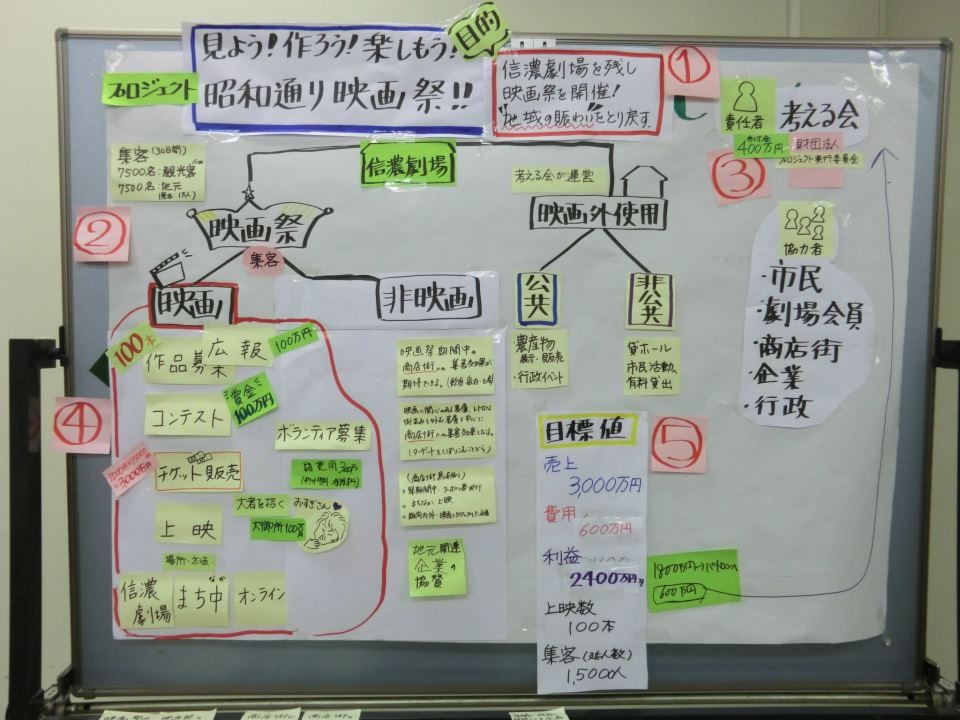 見よう!作ろう!楽しもう!
昭和通り映画祭!!
プロジェクト
目的
信濃劇場を残し
映画祭を開催!
"地域の賑わい"をとり戻す.
①
責任者
考える会
400万円
財団法人
プロジェクト実行委員会
③
集客(30日間)
7500名:観光客
7500名:地元
信濃劇場
考える会が運営
②
映画祭
集客
映画外使用
協力者
・市民
・劇場会員
・商店街
・企業
・行政
映画
非映画
公共
非公共
・農産物
展示・販売
・行政イベント
貸ホール
市民活動、
有料貸出
④
100本
作品募集
広報
100万円
コンテスト
賞金
100万円
ボランティア募集
チケット販売
3000万円
諸費用300万
上映
大者を招く
大御所100万
おすぎさん
場所・方法
信濃
劇場
まち中
なか
オンライン
映画祭期間中の
商店街への集客効果が
期待できる。
商店街への集客効果となる。
地元関連
企業の
協賛
目標値
⑤
売上
3,000万円
費用
600万円
利益
2400万円
上映数
100本
集客(延人数)
1,500人
600万円